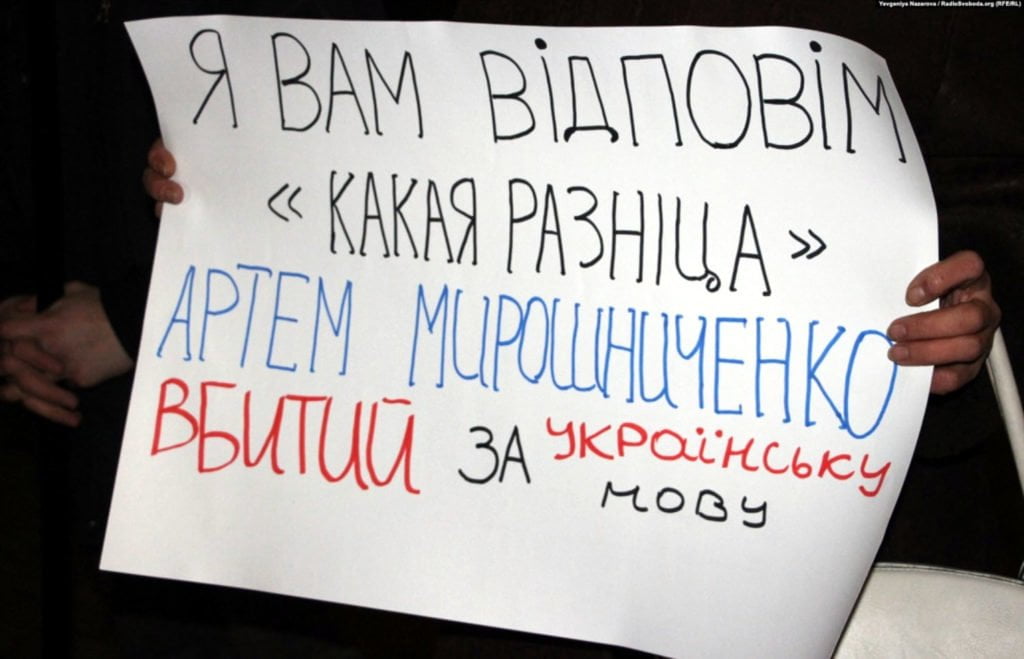 Yevgeniya Nazarova / RadioSvoboda.org (RFE/RL)
Я ВАМ ВІДПОВІМ
« КАКАЯ РАЗНІЦА »
АРТЕМ МИРОШНИЧЕНКО
ВБИТИЙ ЗА УКРАЇНСЬКУ
МОВУ